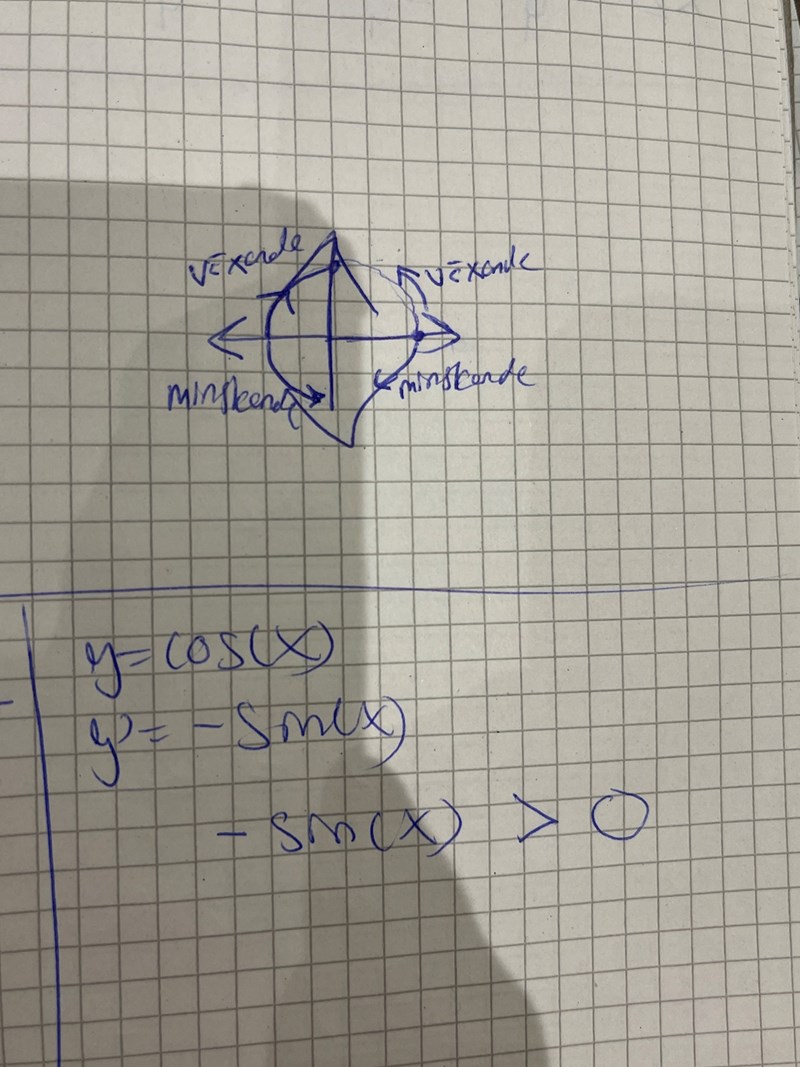 växande
växande
minskande
minskande
y=cos(x)
y'= -sin(x)
-sin(x) > 0